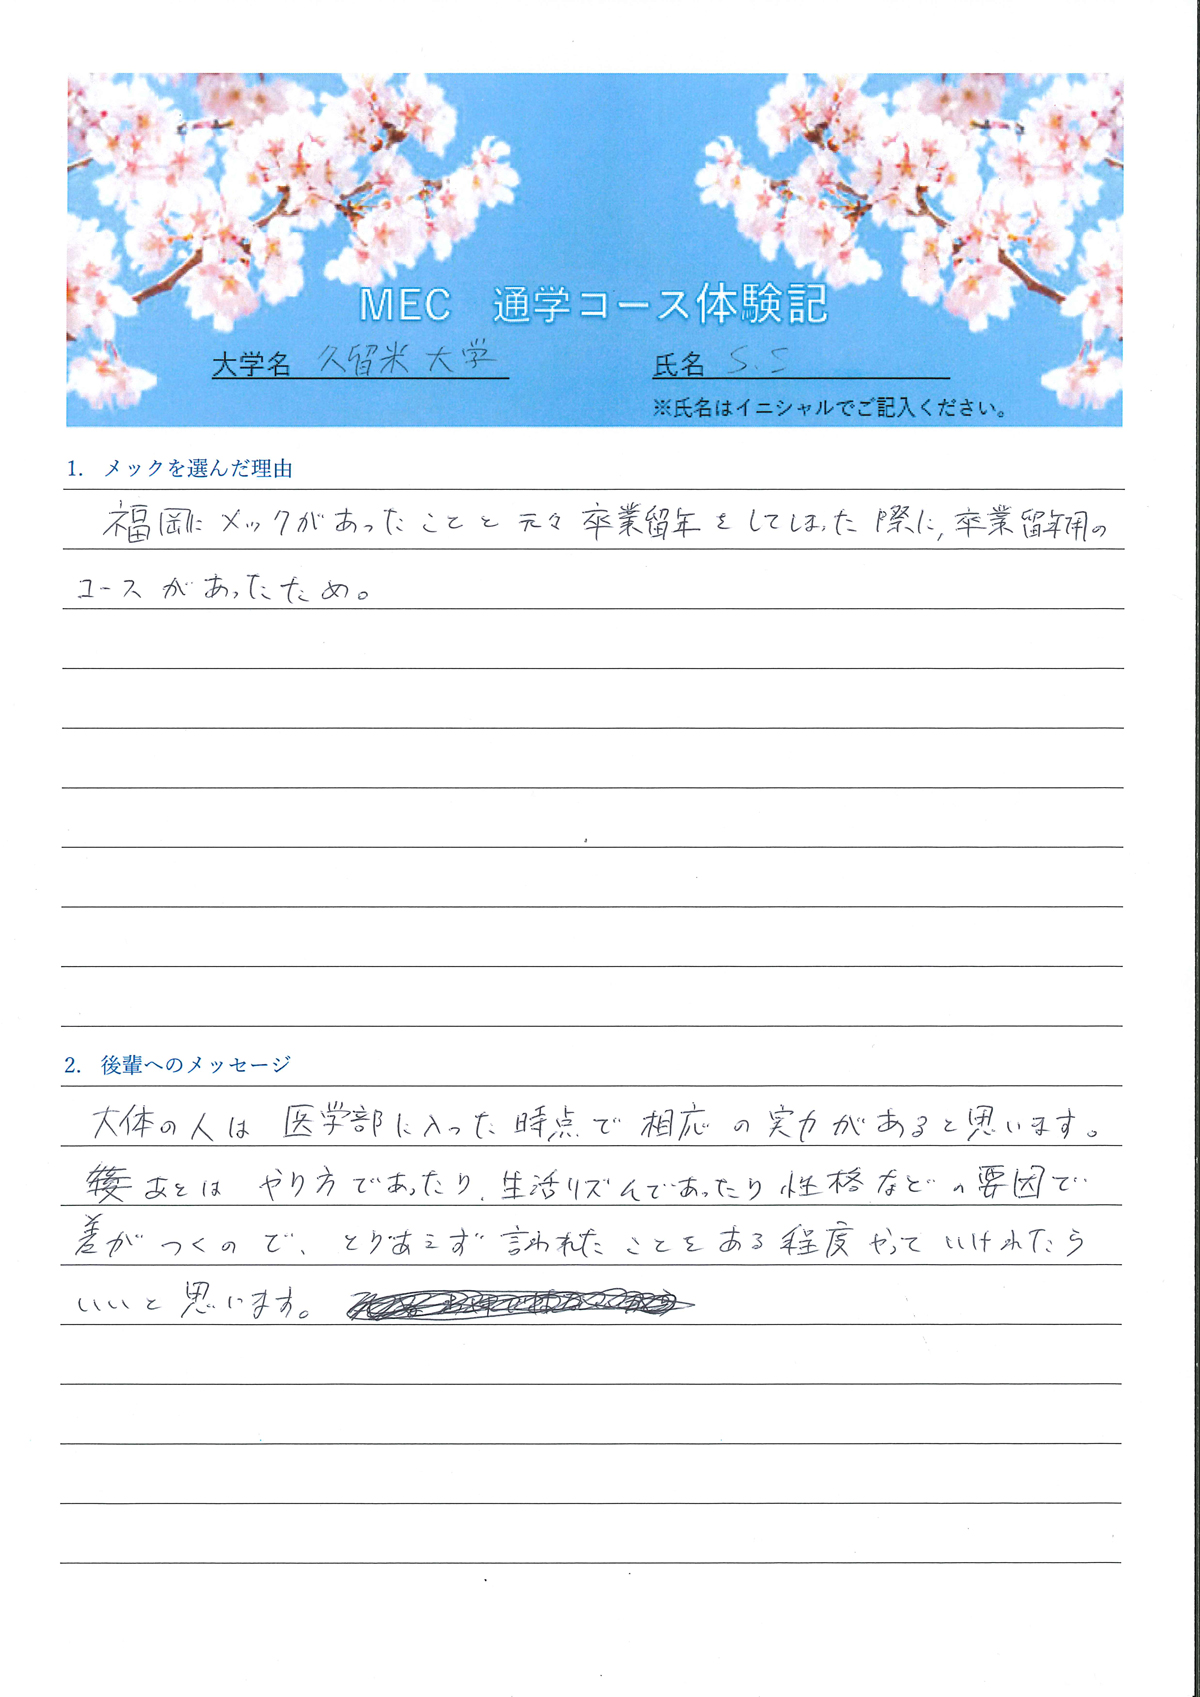 MEC 通学コース体験記
大学名 久留米大学 氏名 S.S
※氏名はイニシャルでご記入ください。
1. メックを選んだ理由
福岡にメックがあったことと元々卒業留年をしてしまった際に,卒業留年用の
コースがあったため。
2. 後輩へのメッセージ
大体の人は医学部に入った時点で相応の実力があると思います。
あとはやり方であったり、生活リズムであったり性格などの要因で
差がつくので、とりあえず言われたことをある程度やっていけれたら
いいと思います。